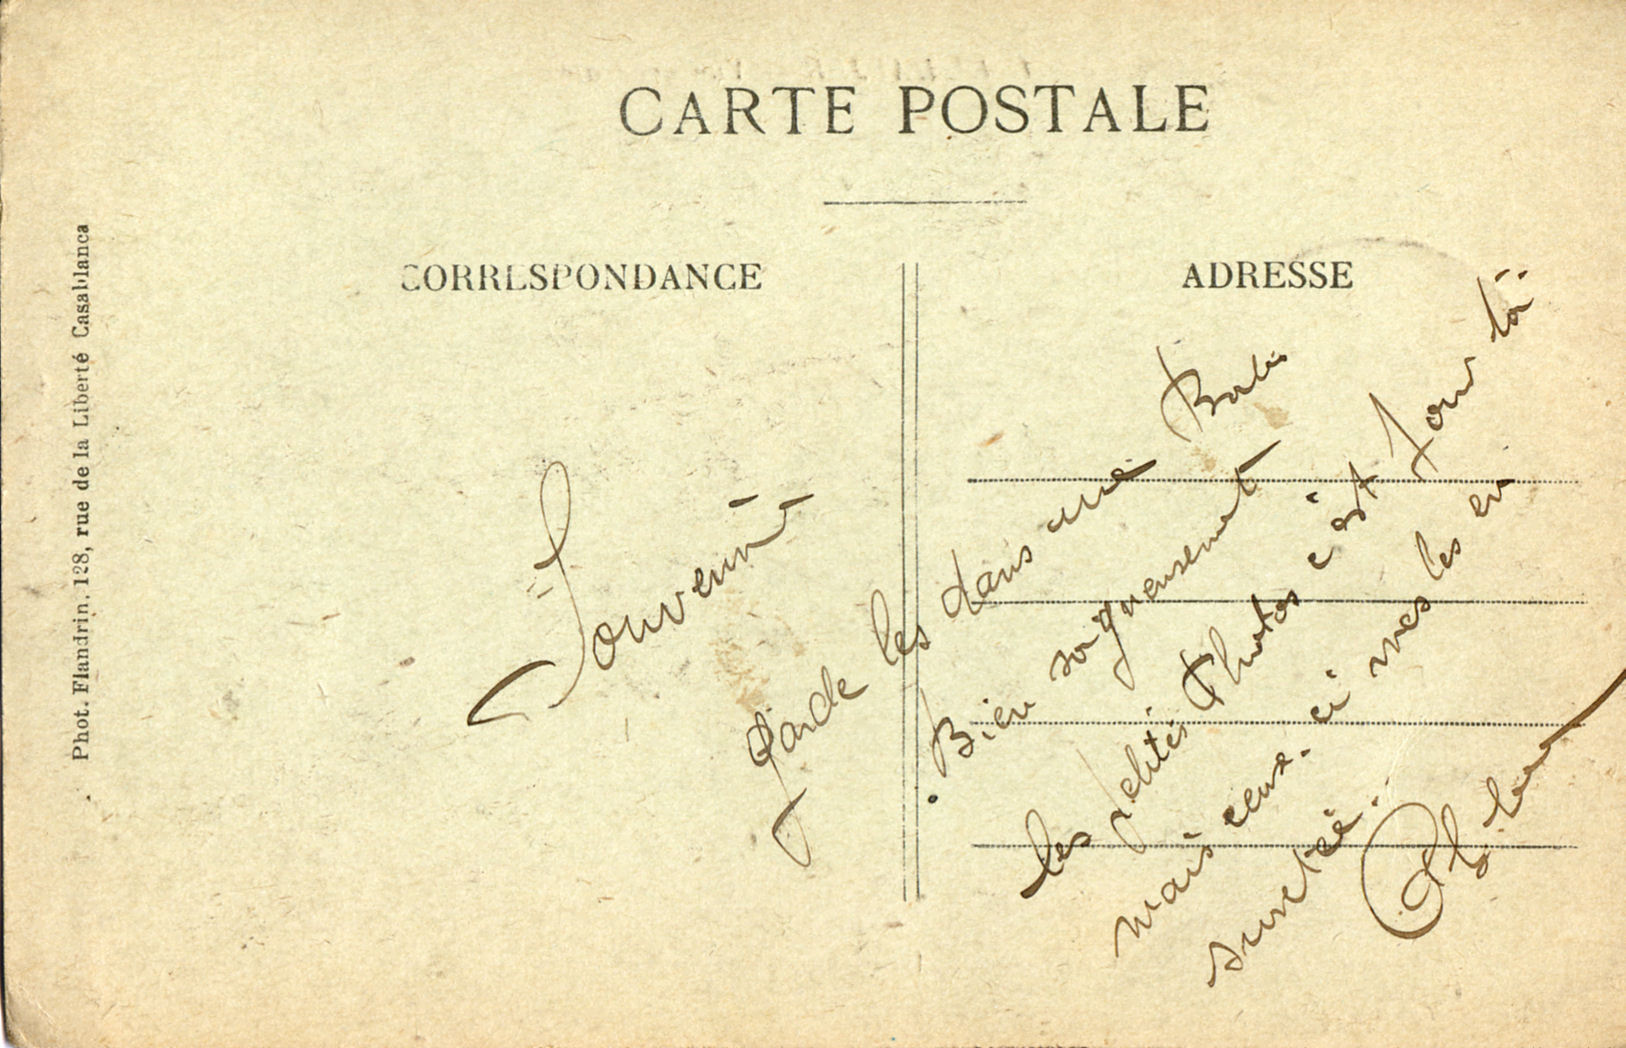 CARTE POSTALE
CORRESPONDANCE
ADRESSE
Phot. Flandrin. 128, rue de la Liberté Casablanca
Souvenir
garde les dans une
Bien soigneusement
les petites Photos c'est pour toi
mais ceux-ci mes les en
suretéé.